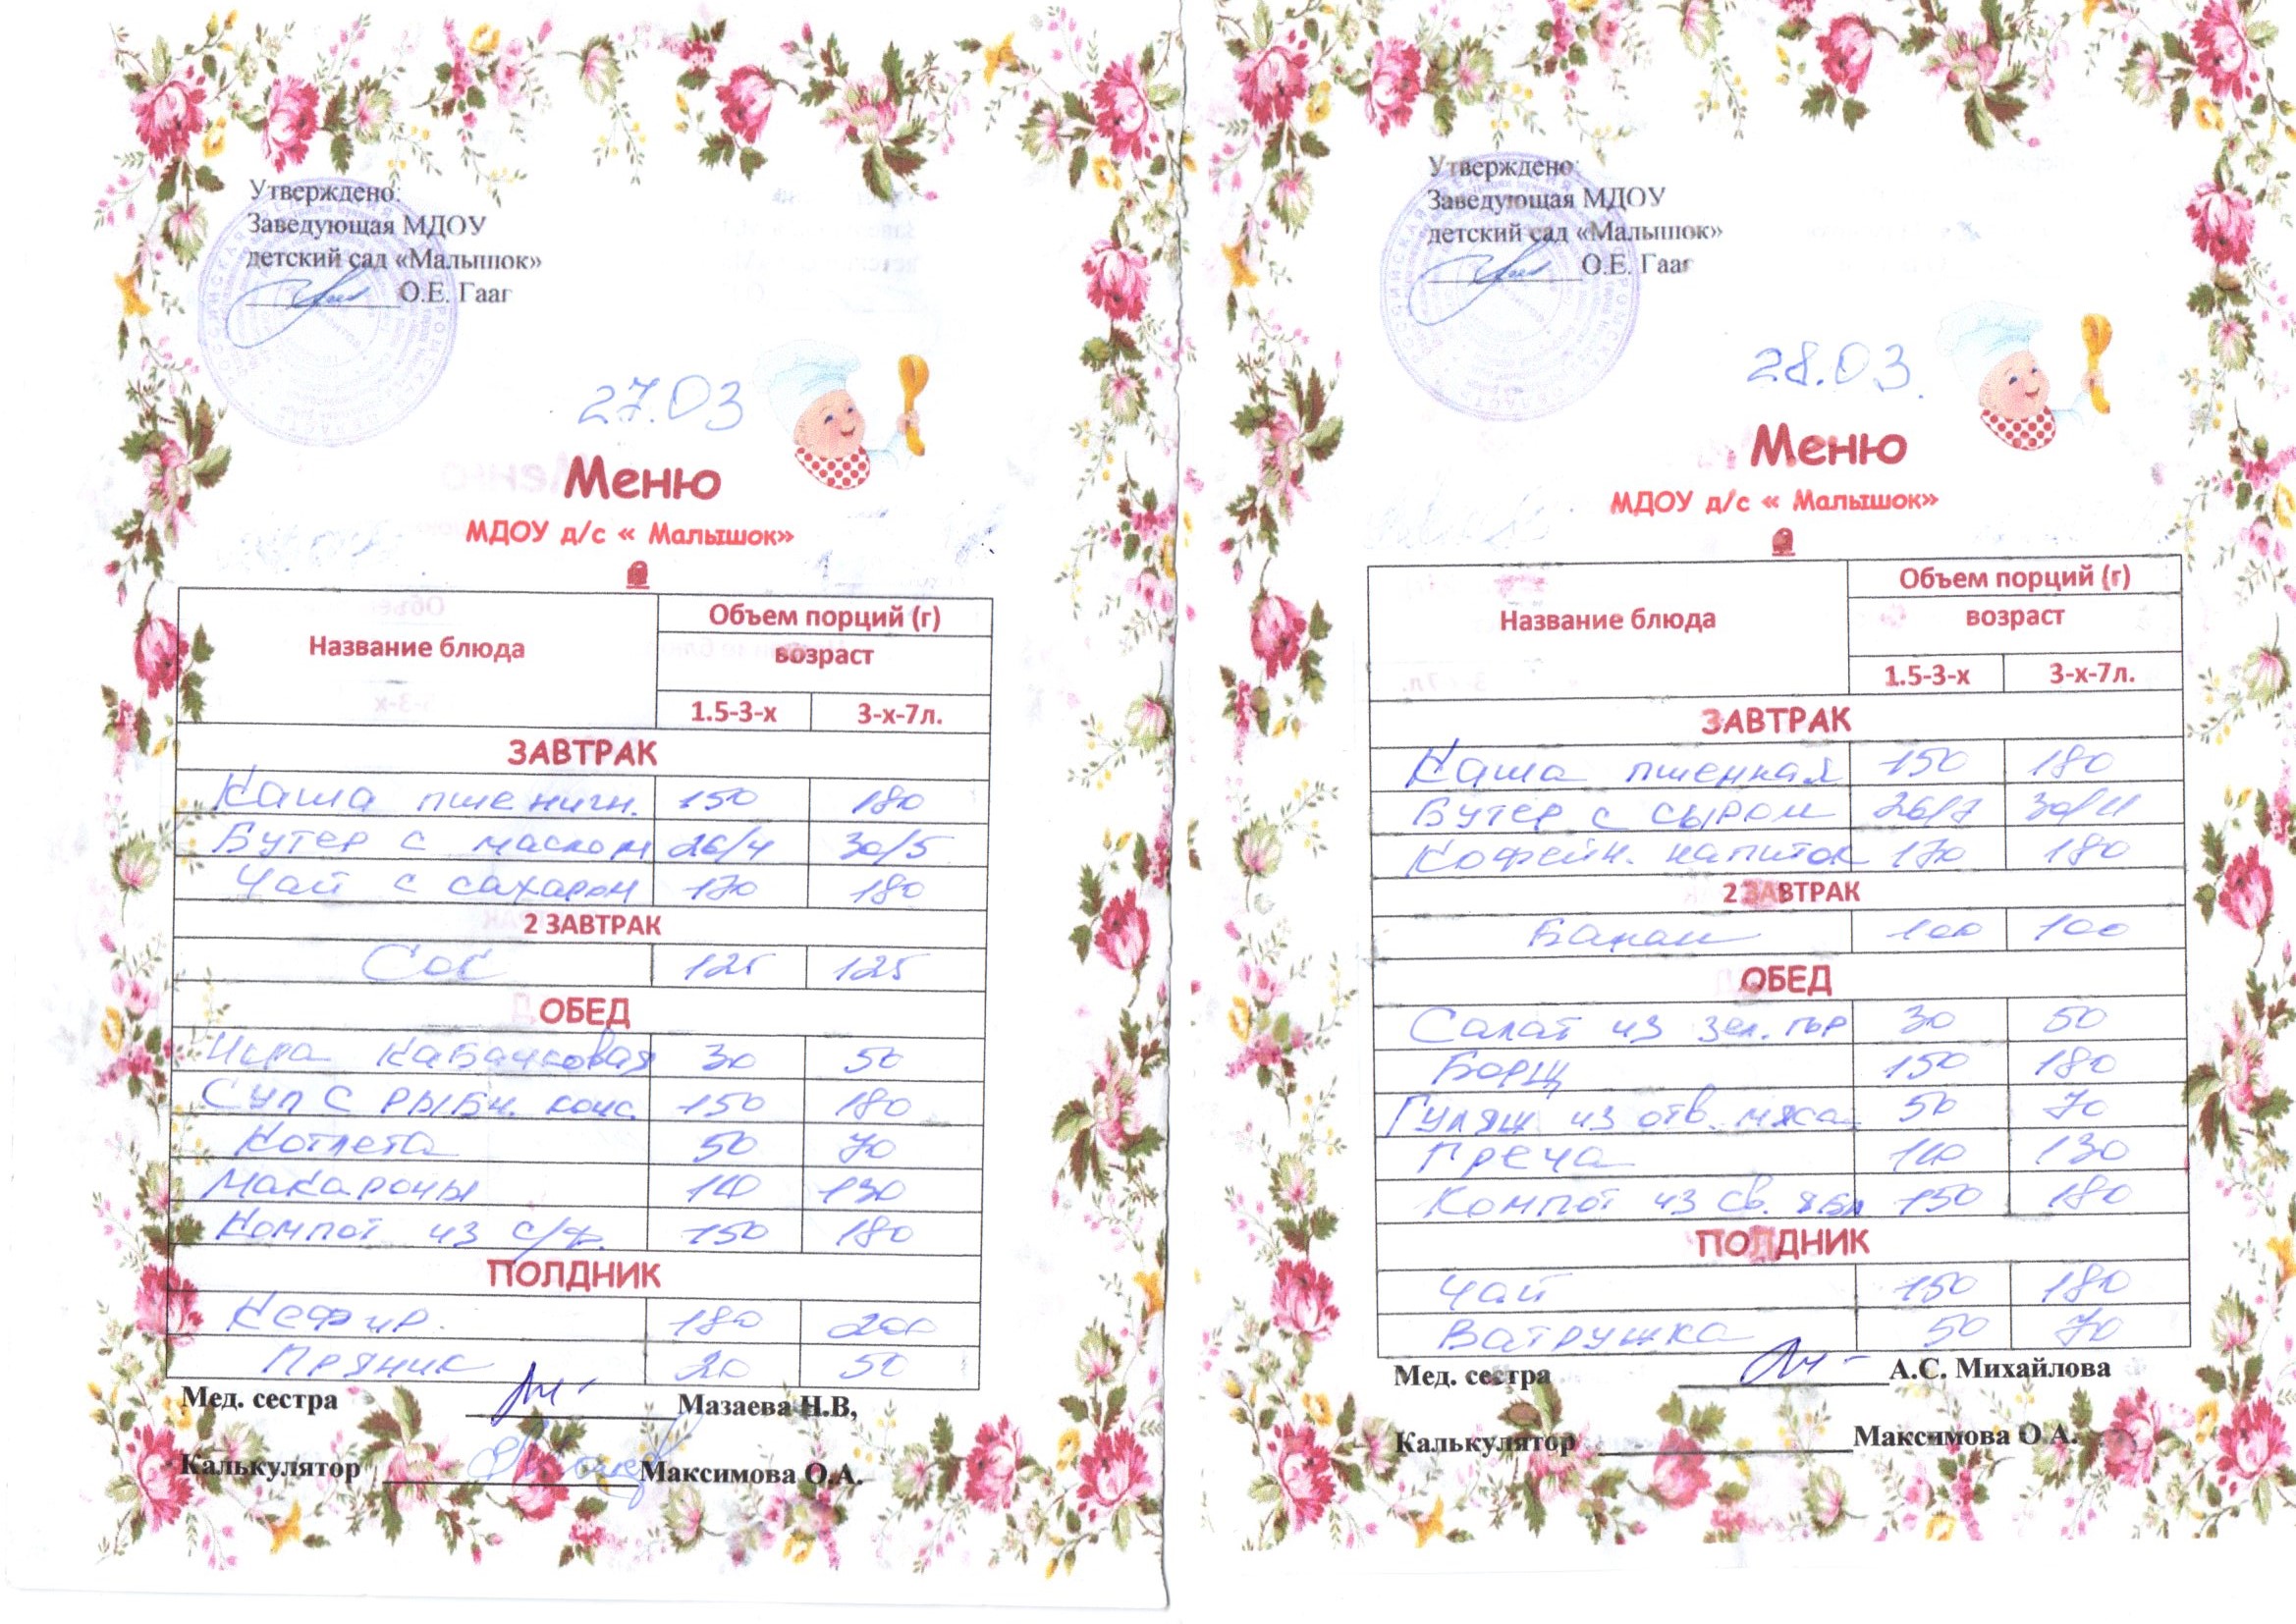 Утверждено:
Заведующая МДОУ
детский сад «Малышок»
О.Е. Гааг
27.03
Меню
МДОУ д/с « Малышок»
Название блюда
Объем порций (г)
возраст
1.5-3-х 3-х-7л.
ЗАВТРАК
Каша пшеничн. 150 180
Бутер с маслом 26/4 30/5
Чай с сахаром 170 180
2 ЗАВТРАК
Сок 125 125
ОБЕД
Икра кабачковая 30 50
Суп с рыбн. конс. 150 180
Котлета 50 70
Макароны 110 130
Компот из с/ф. 150 180
ПОЛДНИК
Кефир. 180 200
Пряник 50
Мед. сестра Мазаева Н.В,
Калькулятор Максимова О.А.
Утверждено:
Заведующая МДОУ
детский сад «Малышок»
О.Е. Гааг
28.03.
Меню
МДОУ д/с « Малышок»
Название блюда
Объем порций (г)
возраст
1.5-3-х 3-х-7л.
ЗАВТРАК
Каша пшенная 150 180
Бутер с сыром 26/7 30/11
Кофейн. напиток 170 180
2 ЗАВТРАК
Банан 100 100
ОБЕД
Салат из зел. гор 30 50
Борщ 150 180
Гуляш из отв. мяса 50 70
Греча 110 130
Компот из св. ябл 150 180
ПОЛДНИК
Чай 150 180
Ватрушка 50 70
Мед. сестра А.С. Михайлова
Калькулятор Максимова О.А.